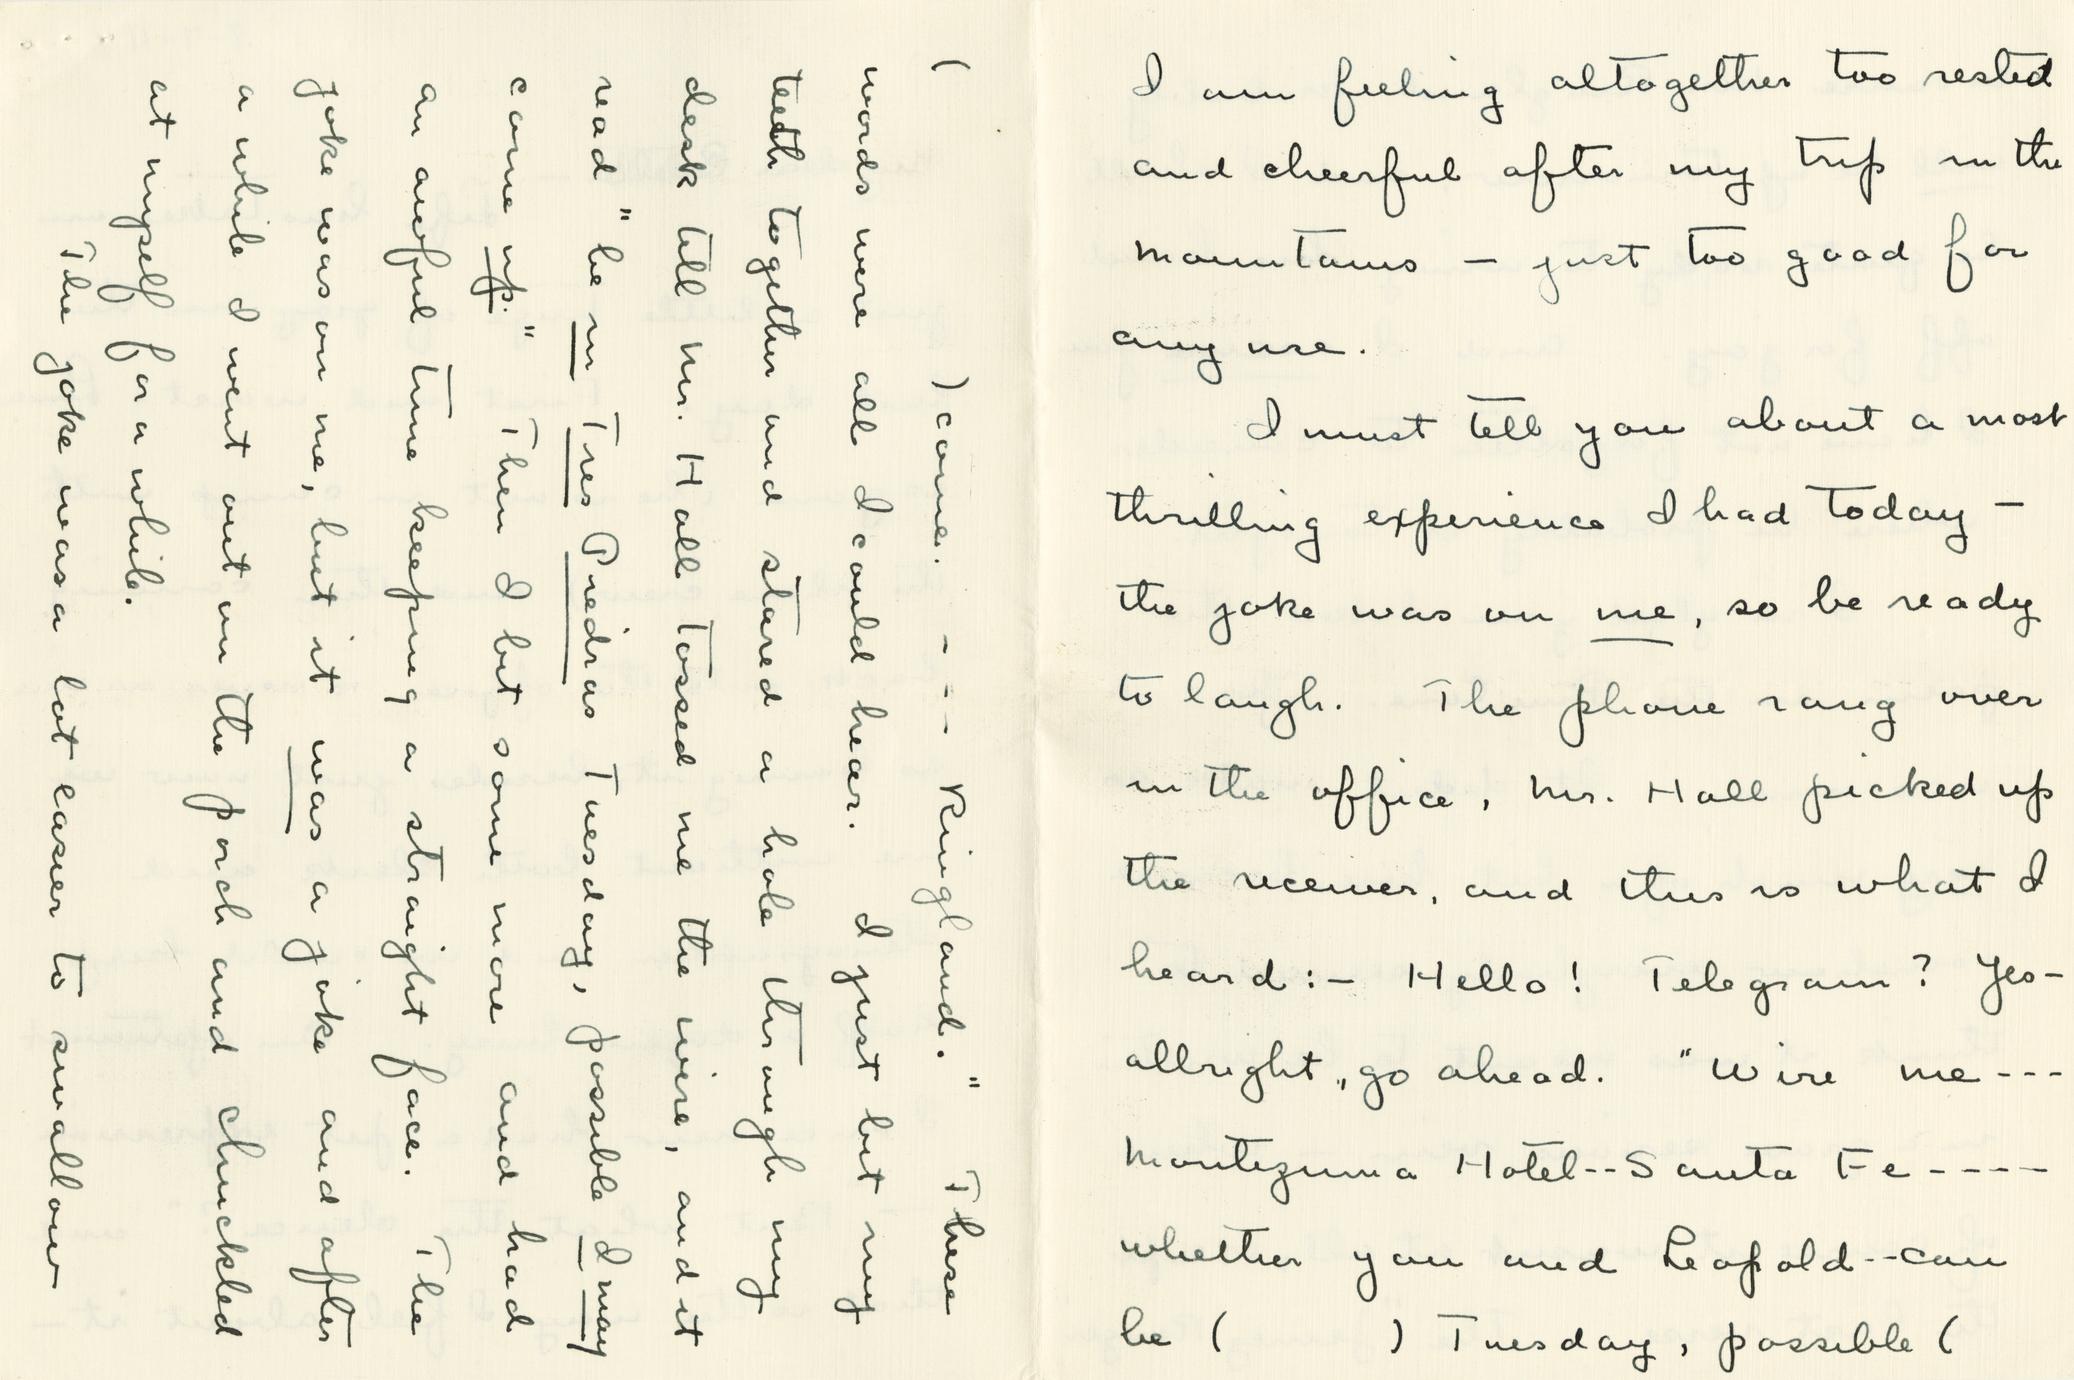 I am feeling altogether too rested
and cheerful after my trip in the
mountains – just too good for
any use.
I must tell you about a most
thrilling experience I had today –
the joke was on me, so be ready
to laugh. The phone rang over
in the office, Mr. Hall picked up
the receiver, and this is what I
heard:– Hello! Telegram? Yes–
allright, go ahead. "Wire me ---
Montezuma Hotel--Santa Fe----
whether you and Leopold--can
be ( ) Tuesday, possible (
( ) come. --- Ringland." These
words were all I could hear. I just bit my
teeth together and stared a hole through my
desk till Mr. Hall tossed me the wire, and it
read "be in Tres Piedras Tuesday, possible I may
come up." Then I bit some more and had
an awful time keeping a straight face. The
joke was on me, but it was a joke and after
a while I went out on the porch and chuckled
at myself for a while.
The joke was a lot easier to swallow